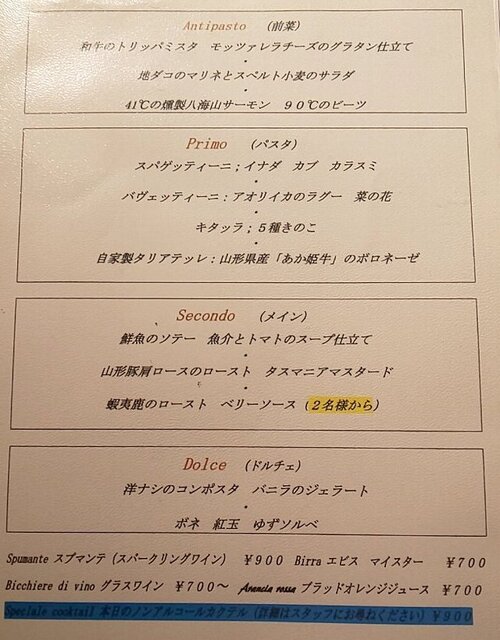 Antipasto (前菜)
和牛のトリッパミスタ モッツァレラチーズのグラタン仕立て
・
地ダコのマリネとスペルト小麦のサラダ
・
41℃の燻製八海山サーモン 90℃のビーツ
Primo (パスタ)
スパゲッティーニ;イナダ カブ カラスミ
・
バヴェッティーニ:アオリイカのラグー 菜の花
・
キタッラ;5種きのこ
・
自家製タリアテッレ:山形県産「あか姫牛」のボロネーゼ
Secondo (メイン)
鮮魚のソテー 魚介とトマトのスープ仕立て
・
山形豚肩ロースのロースト タスマニアマスタード
・
蝦夷鹿のロースト ベリーソース (2名様から)
Dolce (ドルチェ)
洋ナシのコンポスタ バニラのジェラート
・
ボネ 紅玉 ゆずソルベ
Spumante スプマンテ (スパークリングワイン) ¥900 Birra エビス マイスター ¥700
Bicchiere di vino グラスワイン ¥700~ Arancia rossa ブラッドオレンジジュース ¥700
Speciale cocktail 本日のノンアルコールカクテル (詳細はスタッフにお尋ねください) ¥900